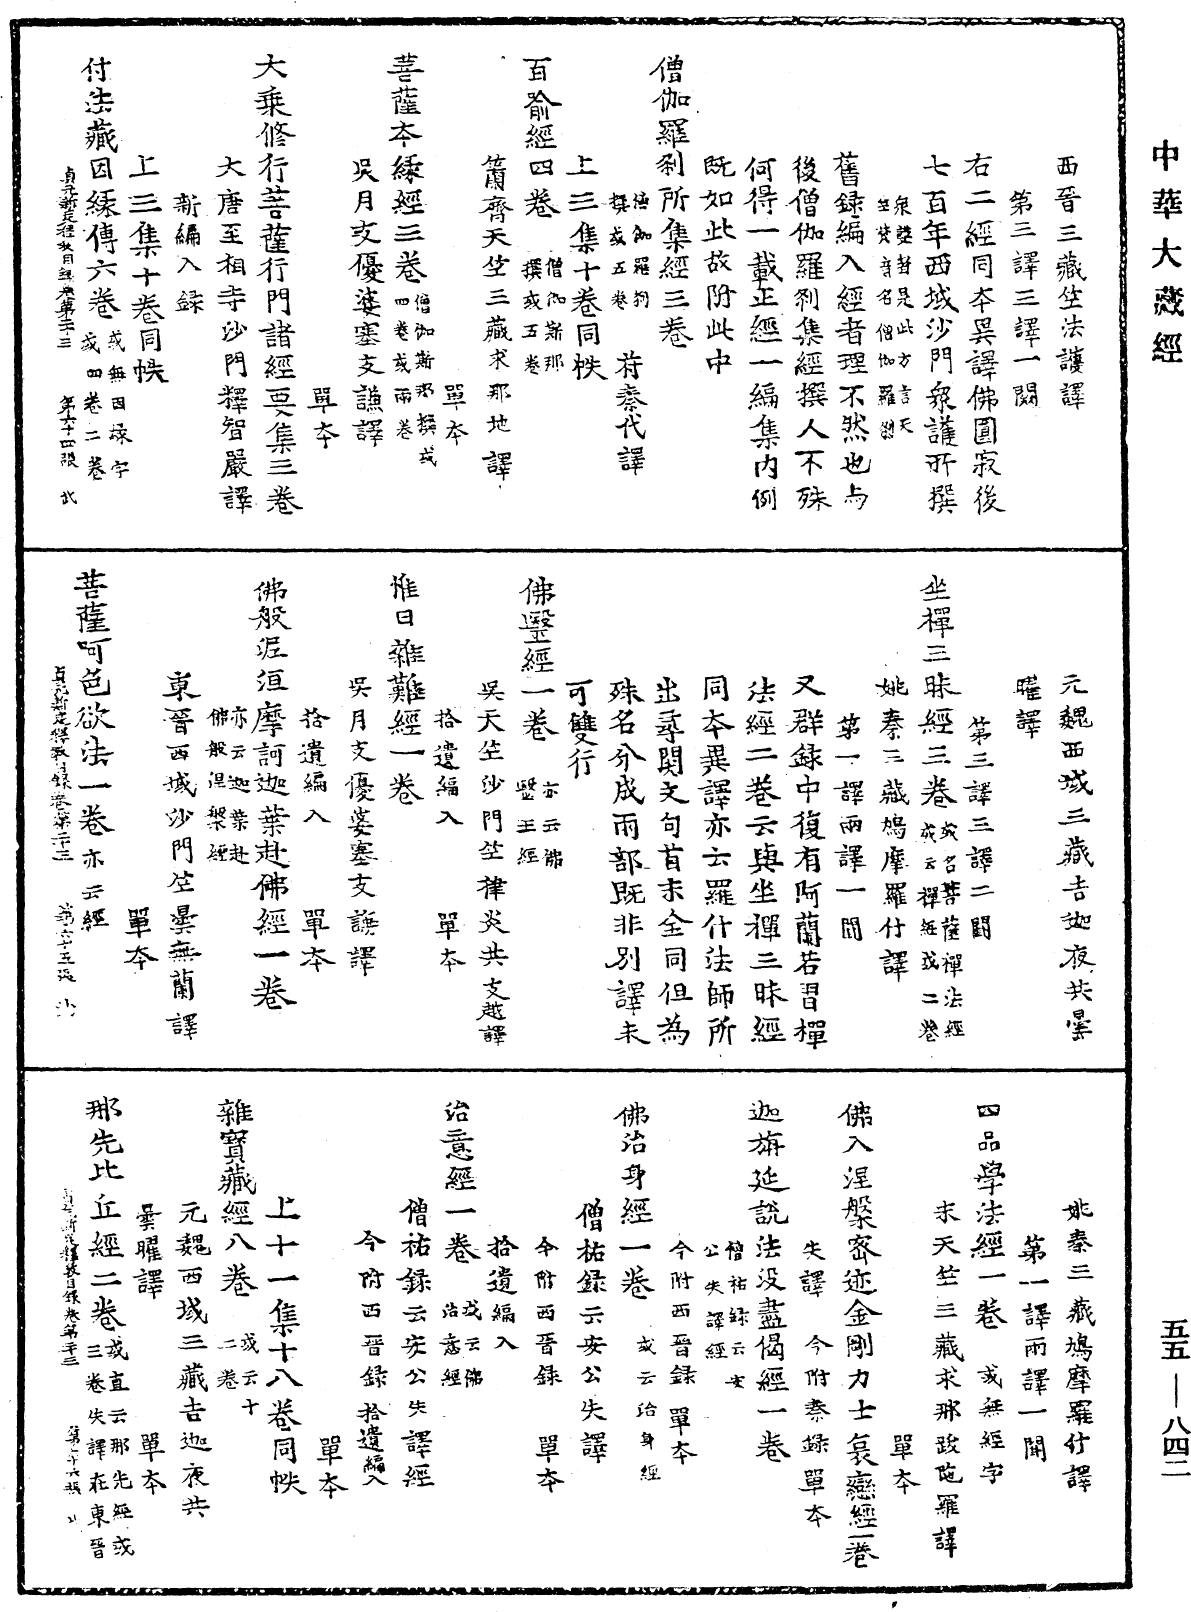 中華大藏經
西晉三藏竺法護譯
第三譯三譯一闕
右二經同本異譯佛圓寂後
七百年西域沙門衆護所撰
衆護對是此方言天
竺梵音名僧伽羅剎
舊錄編入經者理不然也与
後僧伽羅剎集經撰人不殊
何得一載正經一編集內例
既如此故附此中
僧伽羅剎所集經三卷
僧伽羅剎
撰或五卷
苻秦代譯
上三集十卷同帙
百喻經四卷
僧伽斯那
撰或五卷
蕭齊天竺三藏求那地譯
單本
菩薩本緣經三卷
僧伽斯那撰或
四卷或兩卷
吳月支優婆塞支謙譯
單本
大乘修行菩薩行門諸經要集三卷
大唐至相寺沙門釋智嚴譯
新編入錄
上三集十卷同帙
付法藏因緣傳六卷
或無因緣字
或四卷二卷
貞元新定釋教目錄卷第二十三 第六十四張 武
元魏西域三藏吉迦夜共曇
曜譯
第三譯三譯二闕
坐禪三昧經三卷
或名菩薩禪法經
或云禪經或二卷
姚秦三藏鳩摩羅什譯
第一譯兩譯一闕
又群錄中復有阿蘭若習禪
法經二卷云與坐禪三昧經
同本異譯亦云羅什法師所
出尋閱文句首末全同但為
殊名分成兩部既非別譯未
可雙行
佛醫經一卷
亦云佛
醫王經
吳天竺沙門竺律炎共支越譯
拾遺編入 單本
惟日雜難經一卷
吳月支優婆塞支謙譯
拾遺編入 單本
佛般泥洹摩訶迦葉赴佛經一卷
亦云迦葉赴
佛般涅槃經
東晉西域沙門竺曇無蘭譯
單本
菩薩呵色欲法一卷亦云經
貞元新定釋教目錄卷第二十三 第六十五張
姚秦三藏鳩摩羅什譯
第一譯兩譯一闕
四品學法經一卷 或無經字
末天竺三藏求那跋陀羅譯
單本
佛入涅槃密迹金剛力士哀戀經一卷
失譯 今附秦錄 單本
迦旃延說法沒盡偈經一卷
僧祐錄云安
公失譯經
今附西晉錄 單本
佛治身經一卷 或云治身經
僧祐錄云安公失譯
今附西晉錄 單本
拾遺編入
治意經一卷
或云佛
治意經
僧祐錄云安公失譯經
今附西晉錄拾遺編入
單本
上十一集十八卷同帙
雜寶藏經八卷
或云十
二卷
元魏西域三藏吉迦夜共
曇曜譯 單本
那先比丘經二卷
或直云那先經或
三卷失譯在東晉
貞元新定釋教目錄卷第二十三 第六十六張
五五—八四二